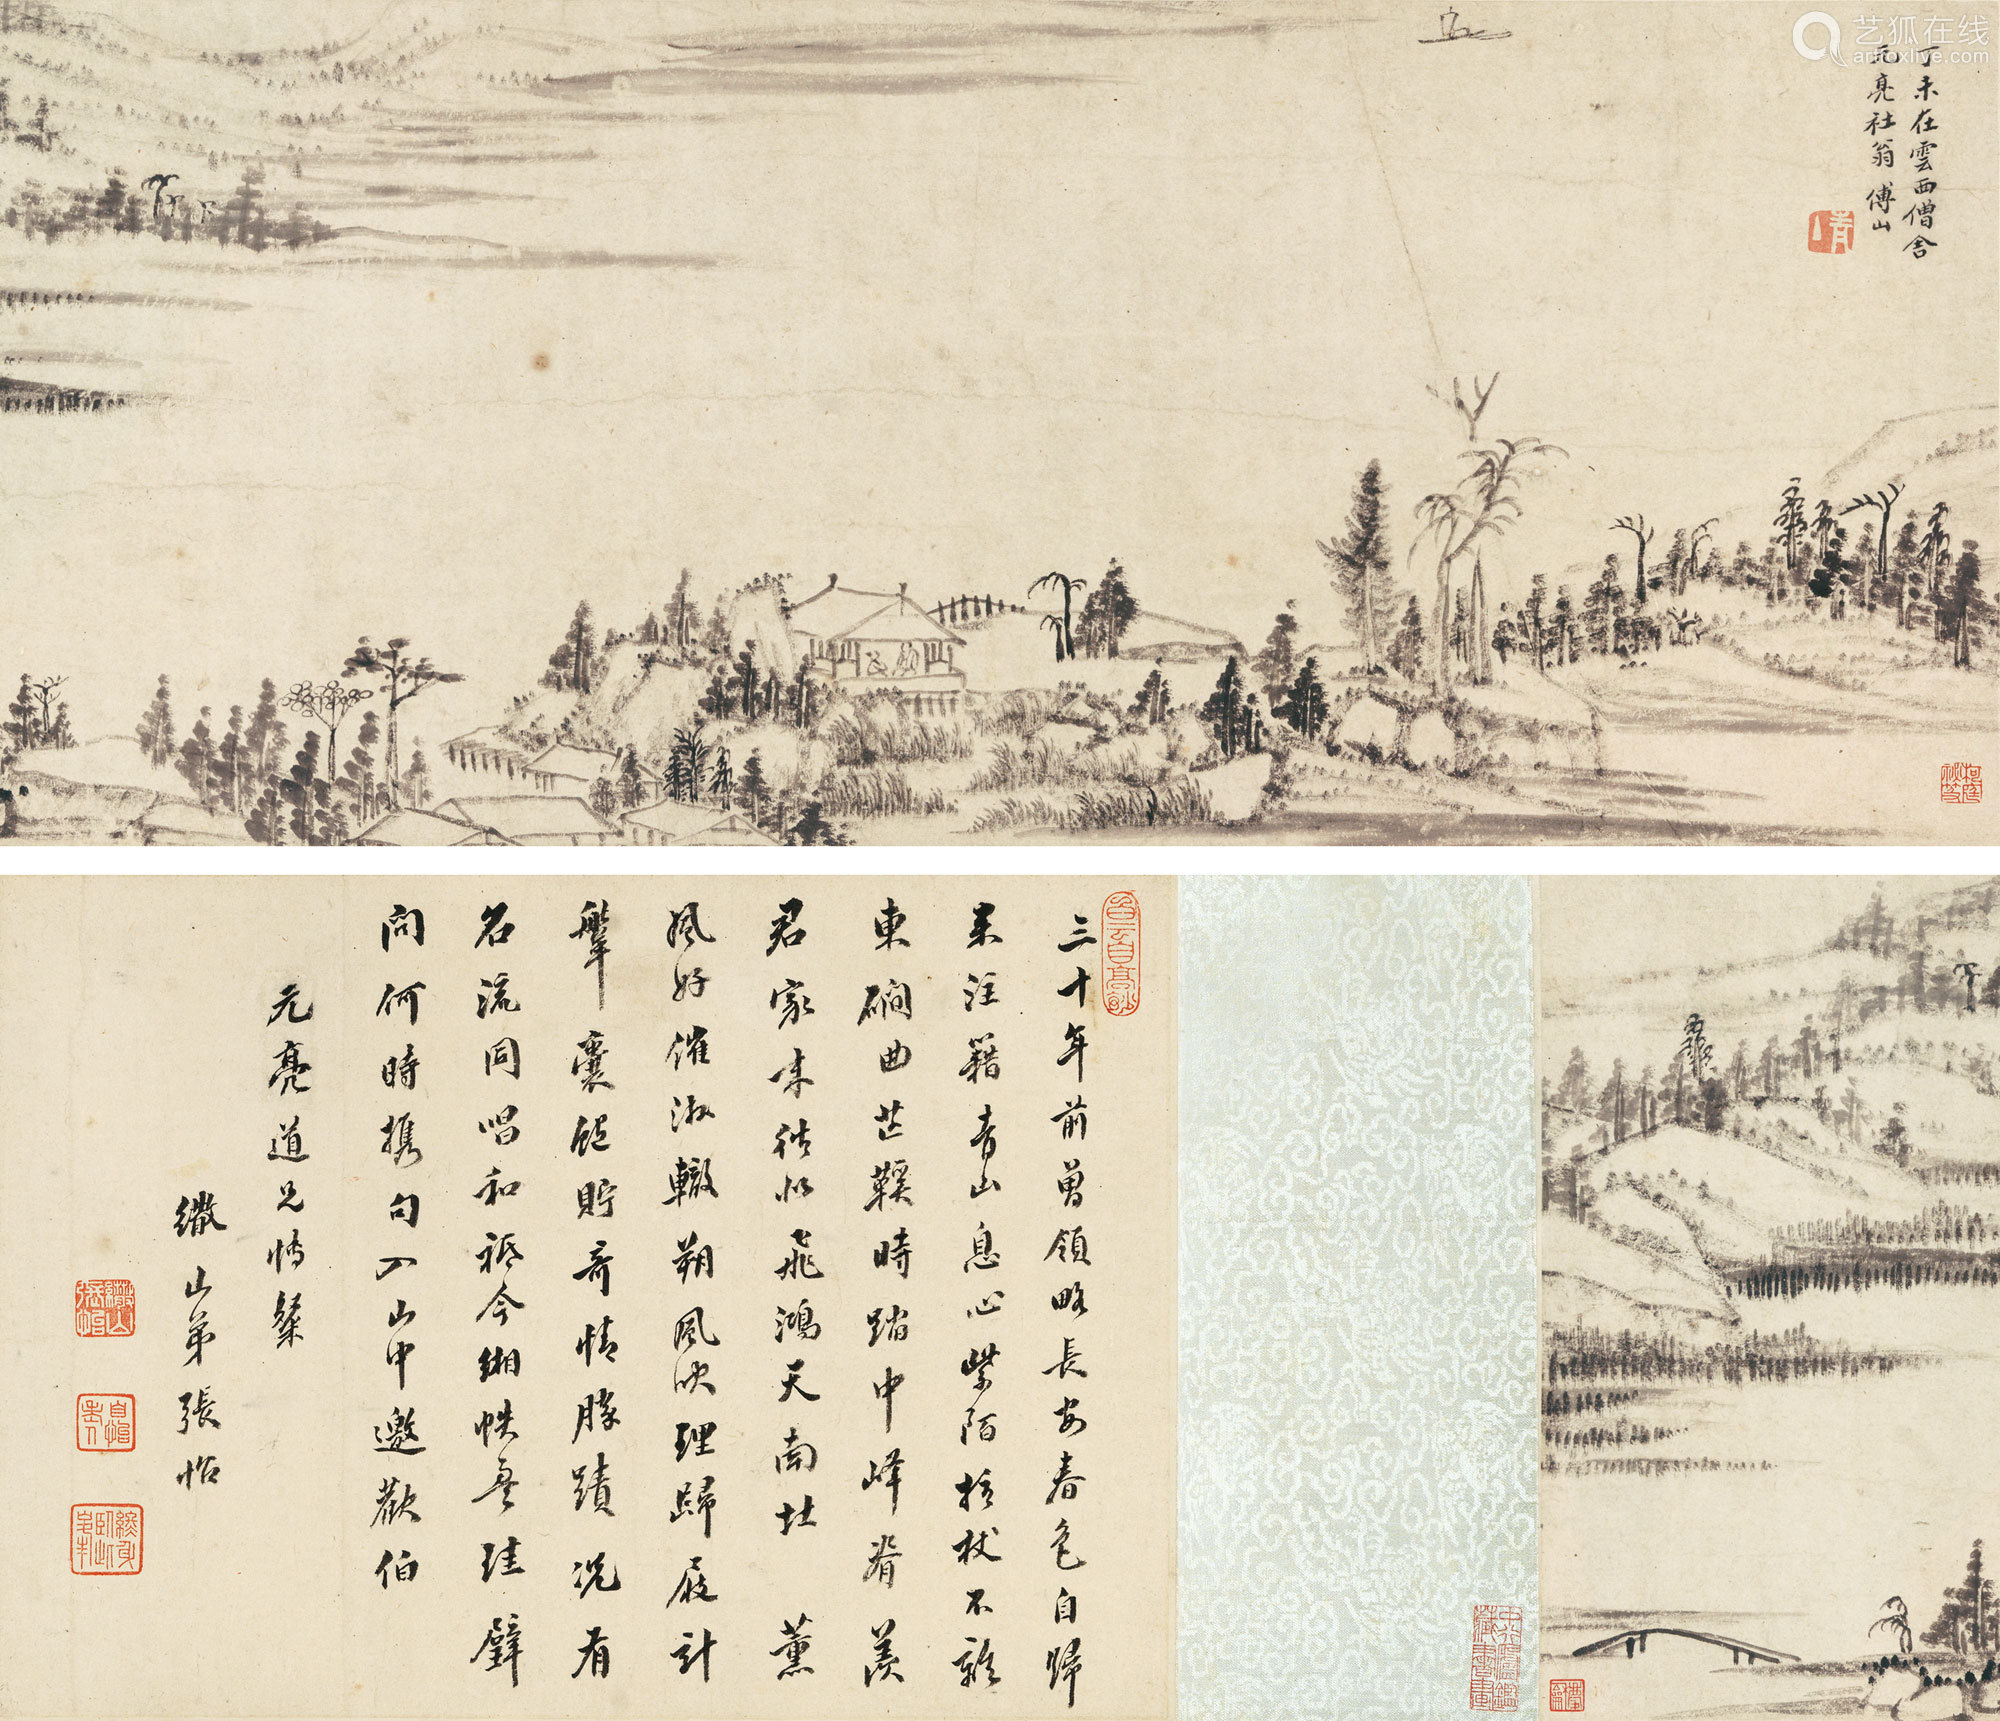 艺狐在线
artfoxlive.com
丁未在雲西僧舍
元亮社翁 傅山
三十年前曾領略長安春色自歸
來注籍青山息心紫陌拄杖不離
東磵曲芒鞵時踏中峰脊羨
君家來往似飛鴻天南北 薰
風好催淑轍朔風吹理歸屐計
輦囊綻貯奇情勝蹟況有
名流同唱和祗今緗帙無珪璧
問何時攜句入山中邀歡伯
元亮道兄博粲
繖山弟張怡